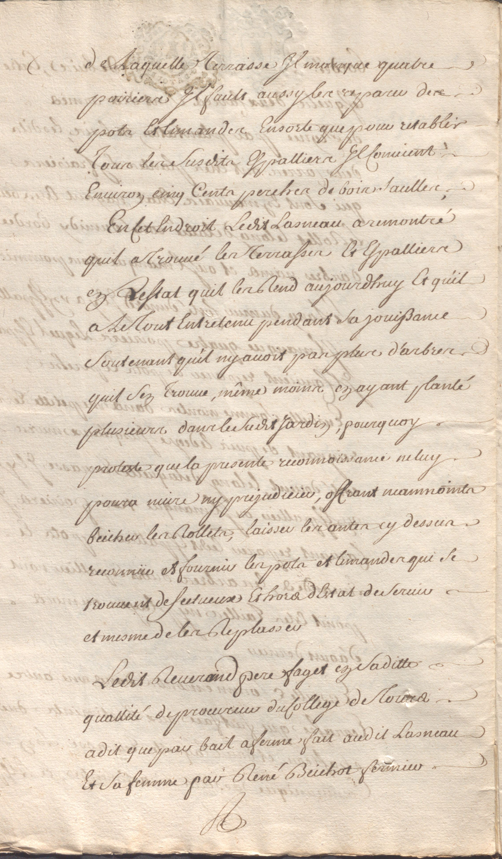 de Laquelle Terrasse Il manque quatre
poiriers Il faut aussy les reparer de
pots Et limandes, Ensorte que pour retablir
Tous les susdits Espalliers Il Convient
Environ cinq Cents perches de bois saulles,
En Cet Endroit Ledit Lasneau a remontré
quil a Trouvé les Terrasses Et Espalliers
en Lestat quil les Rend aujourdhuy Et quil
a Le Tout Entretenu pendant sa jouissance
Soutenant quil ny avoit pas plus d'arbres
quil sen trouve, même moins, en ayant planté
plusieurs dans le susdit Jardin, pourquoy
proteste que la presente reconnoissance ne luy
poura nuire ny prejudicier, offrant neanmoints
bescher les laisser les antes cy dessus
reconnue et fournir les pots et limandes qui se
trouvent defectueux Et hors d'Estat de servir
et mesme de les Replasser
Ledit Reverand pere faget en sa ditte
quallité de procureur du College de
a dit que par bail a ferme fait audit Lasneau
Et sa femme par René Beichot fermier